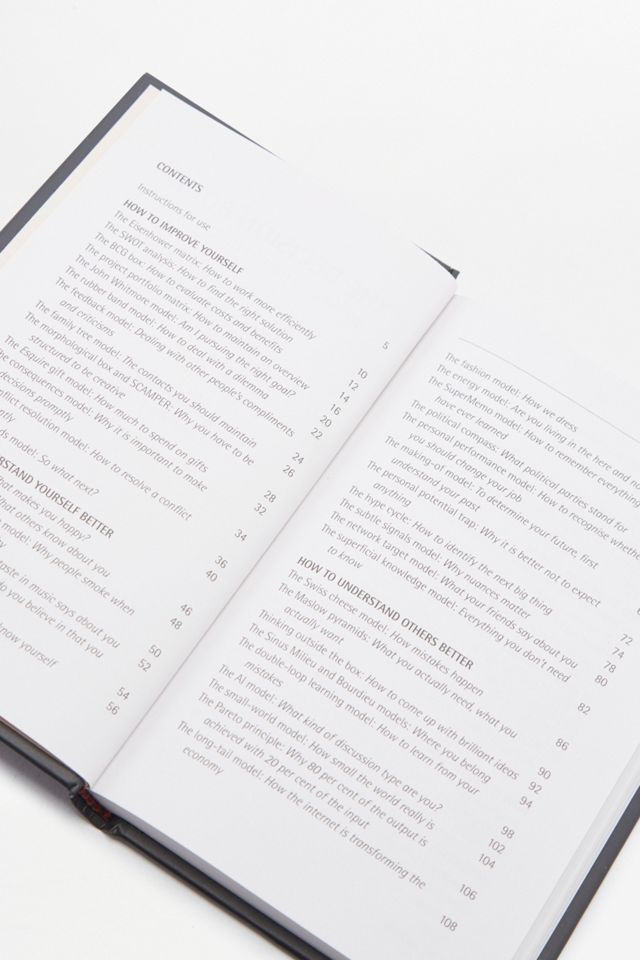 CONTENTS
Instructions for use
5
HOW TO IMPROVE YOURSELF
The Eisenhower matrix: How to work more efficiently
10
The SWOT analysis: How to find the right solution
12
The BCG box: How to evaluate costs and benefits
14
The project portfolio matrix: How to maintain an overview
16
The John Whitmore model: Am I pursuing the right goal?
20
The rubber band model: How to deal with a dilemma
22
The feedback model: Dealing with other people's compliments
and criticisms
24
The family tree model: The contacts you should maintain
26
The morphological box and SCAMPER: Why you have to be
structured to be creative
28
The Esquire gift model: How much to spend on gifts
32
consequences model: Why it is important to make
decisions promptly
34
resolution model: How to resolve a conflict
36
model: So what next?
40
YOURSELF BETTER
makes you happy?
46
What others know about you
48
model: Why people smoke when
50
taste in music says about you
52
you believe in that you
54
know yourself
56
The fashion model: How we dress
The energy model: Are you living in the here and
The SuperMemo model: How to remember everything
have ever learned
The political compass: What political parties stand for
The personal performance model: How to recognise whether
you should change your job
The making-of model: To determine your future, first
understand your past
The personal potential trap: Why it is better not to expect
anything
72
The hype cycle: How to identify the next big thing
74
The subtle signals model: Why nuances matter
78
The network target model: What your friends say about you
80
The superficial knowledge model: Everything you don't need
to know
82
HOW TO UNDERSTAND OTHERS BETTER
The Swiss cheese model: How mistakes happen
86
The Maslow pyramids: What you actually need, what you
actually want
90
Thinking outside the box: How to come up with brilliant ideas
92
The Sinus Milieu and Bourdieu models: Where you belong
94
The double-loop learning model: How to learn from your
mistakes
98
The AI model: What kind of discussion type are you?
102
The small-world model: How small the world really is
104
The Pareto principle: Why 80 per cent of the output is
achieved with 20 per cent of the input
106
The long-tail model: How the internet is transforming the
economy
108